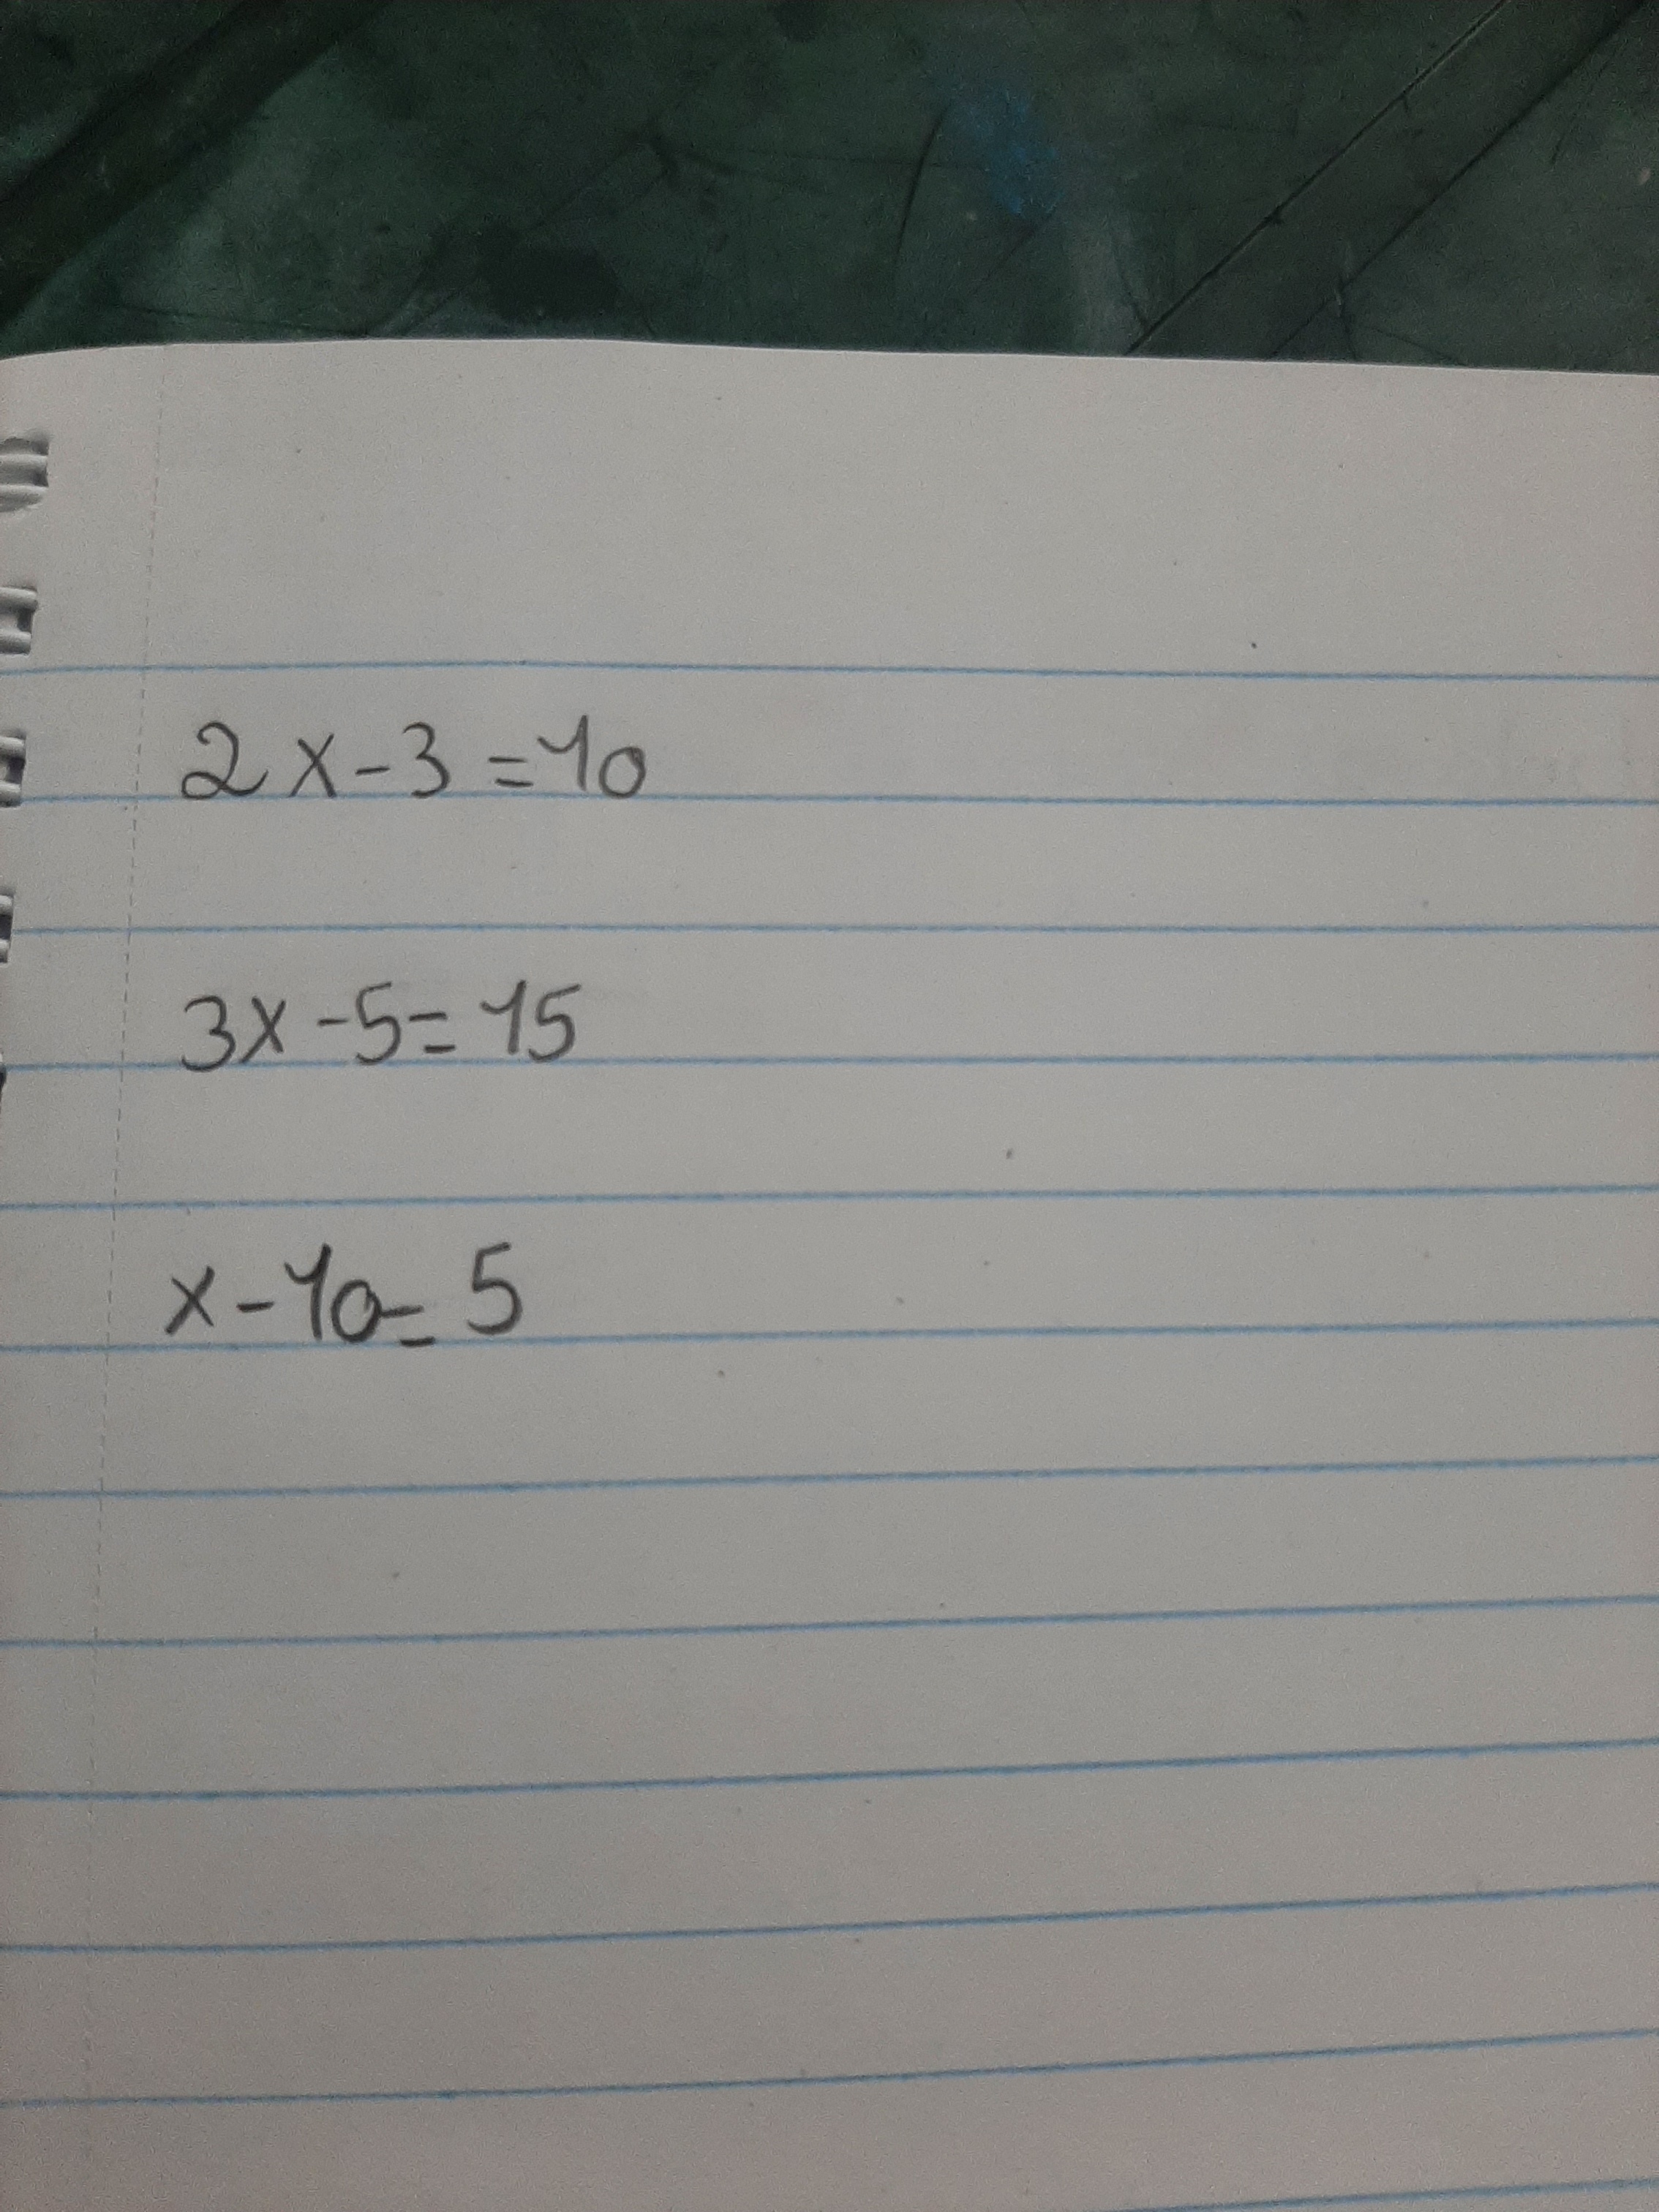 2x-3=10
3x-5=15
x-10=5